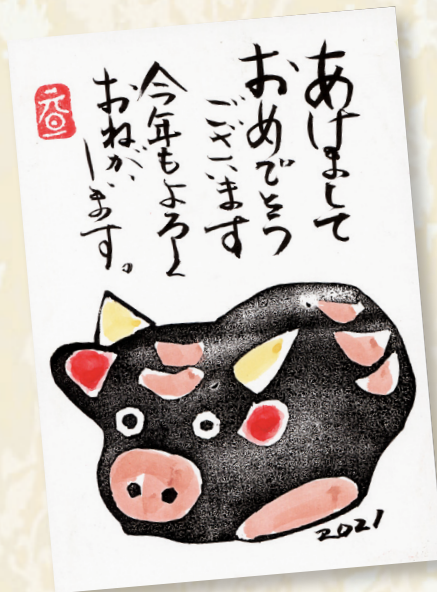 あけまして
おめでとう
ございます
今年もよろしく
おねがい
します。
元旦
2021